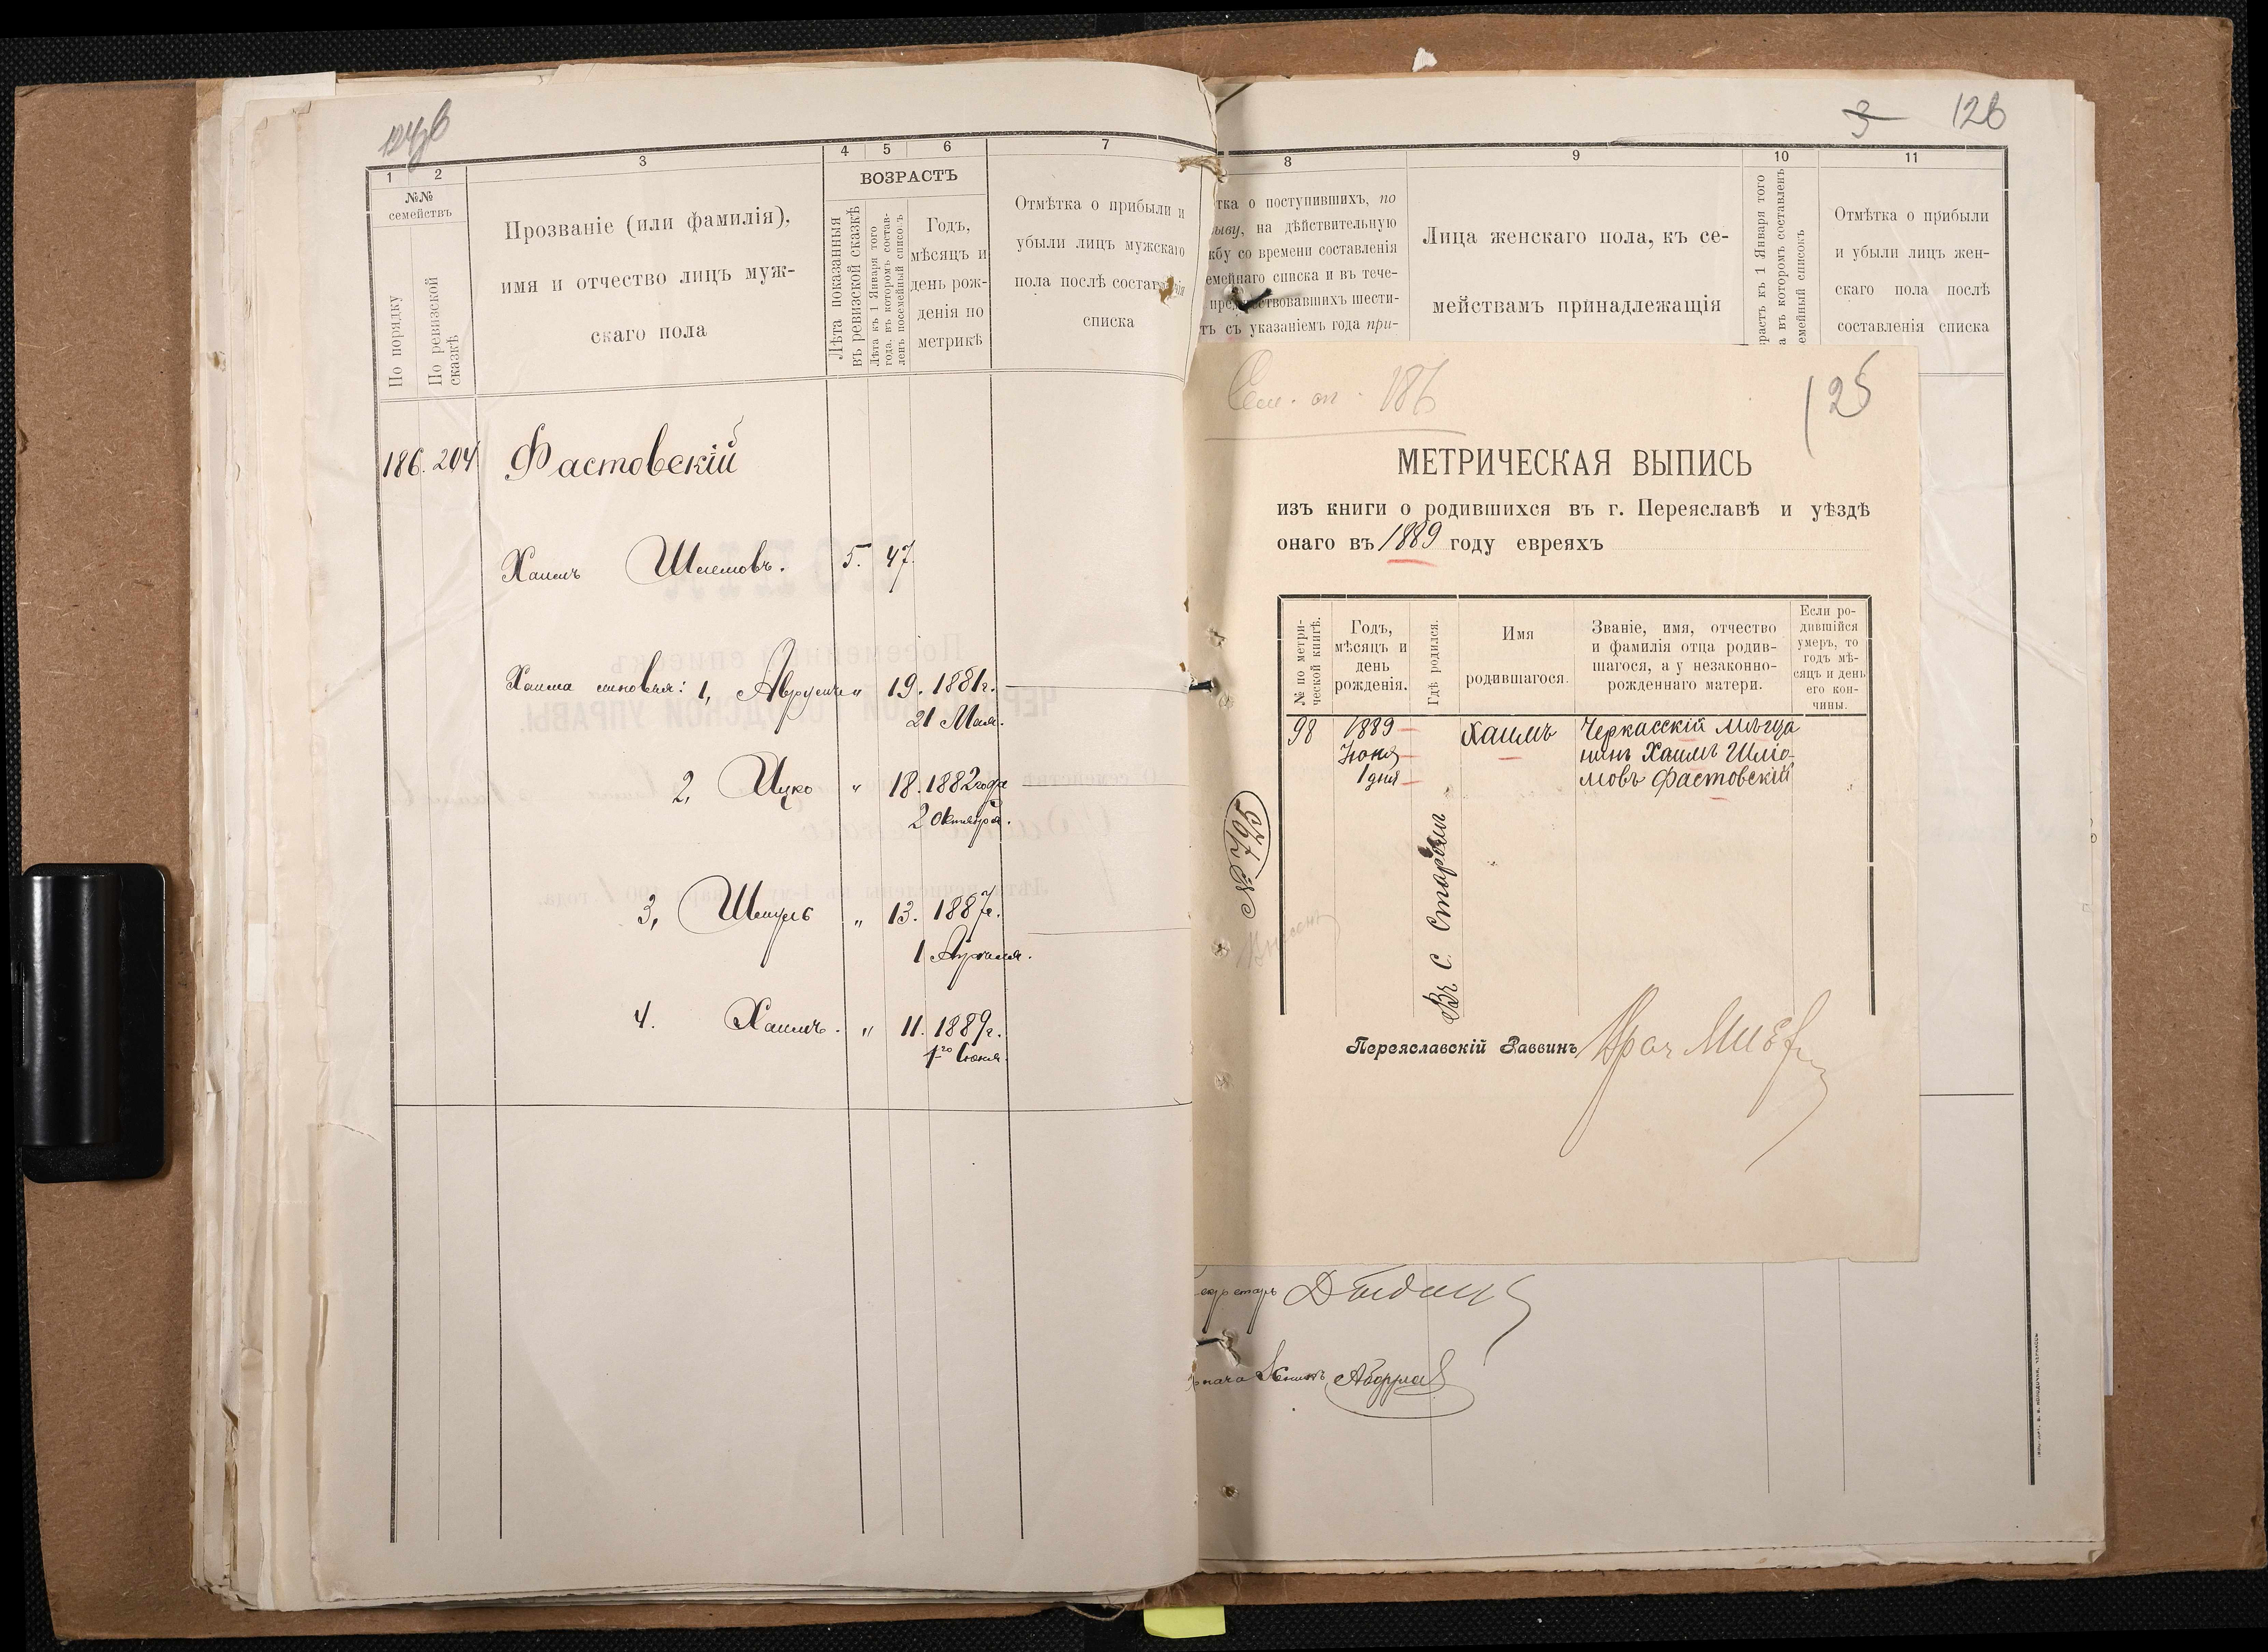 1 2 3 4 5 6 7
№№ семействъ
По порядку
По ревизской сказкѣ
Прозваніе (или фамилія),
имя и отчество лицъ муж-
скаго пола
ВОЗРАСТЪ
Лѣта показанныя
въ ревизской сказкѣ
Лѣта къ 1 Января того
года, въ которомъ состав-
ленъ посемейный списокъ
Годъ,
мѣсяцъ и
день рож-
денія по
метрикѣ
Отмѣтка о прибыли и
убыли лицъ мужскаго
пола послѣ составленія
списка
186. 204 Фастовскій
Хаимъ Шлемовъ. 5. 47.
Хаима сыновья: 1, Аврумъ " 19. 1881г.
21 Мая.
2, Ицко " 18. 1882 года
2 Октября.
3, Шмуль " 13. 1887г.
1 Апреля.
4. Хаимъ. " 11. 1889г.
1го Іюня.
3 126
8 9 10 11
тка о поступившихъ, по
зыву, на дѣйствительную
жбу со времени составленія
емейнаго списка и въ тече-
предшествовавшихъ шести-
тъ съ указаніемъ года при-
Лица женскаго пола, къ се-
мействамъ принадлежащія
растъ къ 1 Января того
а въ которомъ составленъ
емейный списокъ
Отмѣтка о прибыли
и убыли лицъ жен-
скаго пола послѣ
составленія списка
Сем. сп. 186
125
МЕТРИЧЕСКАЯ ВЫПИСЬ
изъ книги о родившихся въ г. Переяславѣ и уѣздѣ
онаго въ 1889 году евреяхъ
№ по метри-
ческой книгѣ.
Годъ,
мѣсяцъ и
день
рожденія.
Гдѣ родился.
Имя
родившагося.
Званіе, имя, отчество
и фамилія отца родив-
шагося, а у незаконно-
рожденнаго матери.
Если ро-
дившійся
умеръ, то
годъ мѣ-
сяцъ и день
его кон-
чины.
98 1889 Хаимъ Черкасскій мѣща
Іюня нинъ Хаимъ Шліо-
1 дня мовъ Фастовскій
Въ С. Старомъ
Переяславскій Раввинъ Врач
екретарь